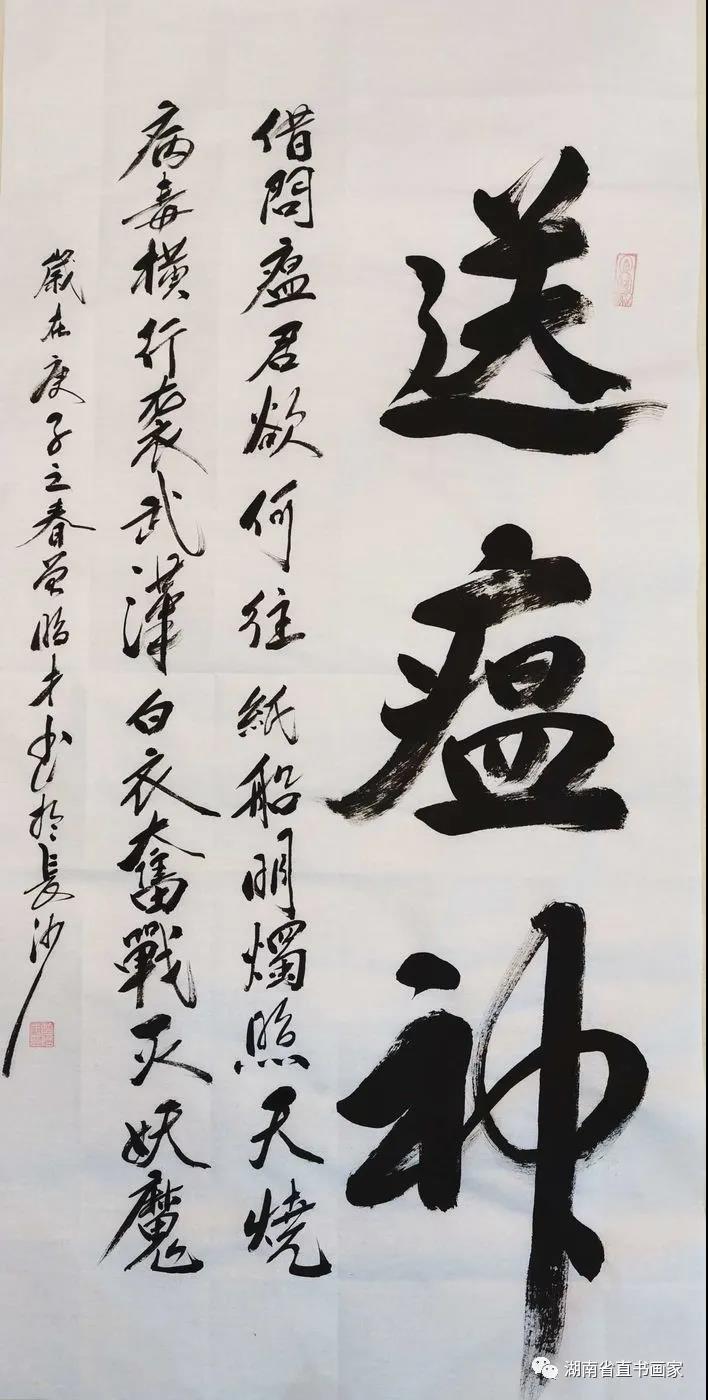 送瘟神
借問瘟君欲何往紙船明燭照天燒
病毒橫行袭武漢白衣奮戰灭妖魔
歲在庚子之春曾臨才书於長沙
湖南省直书画家